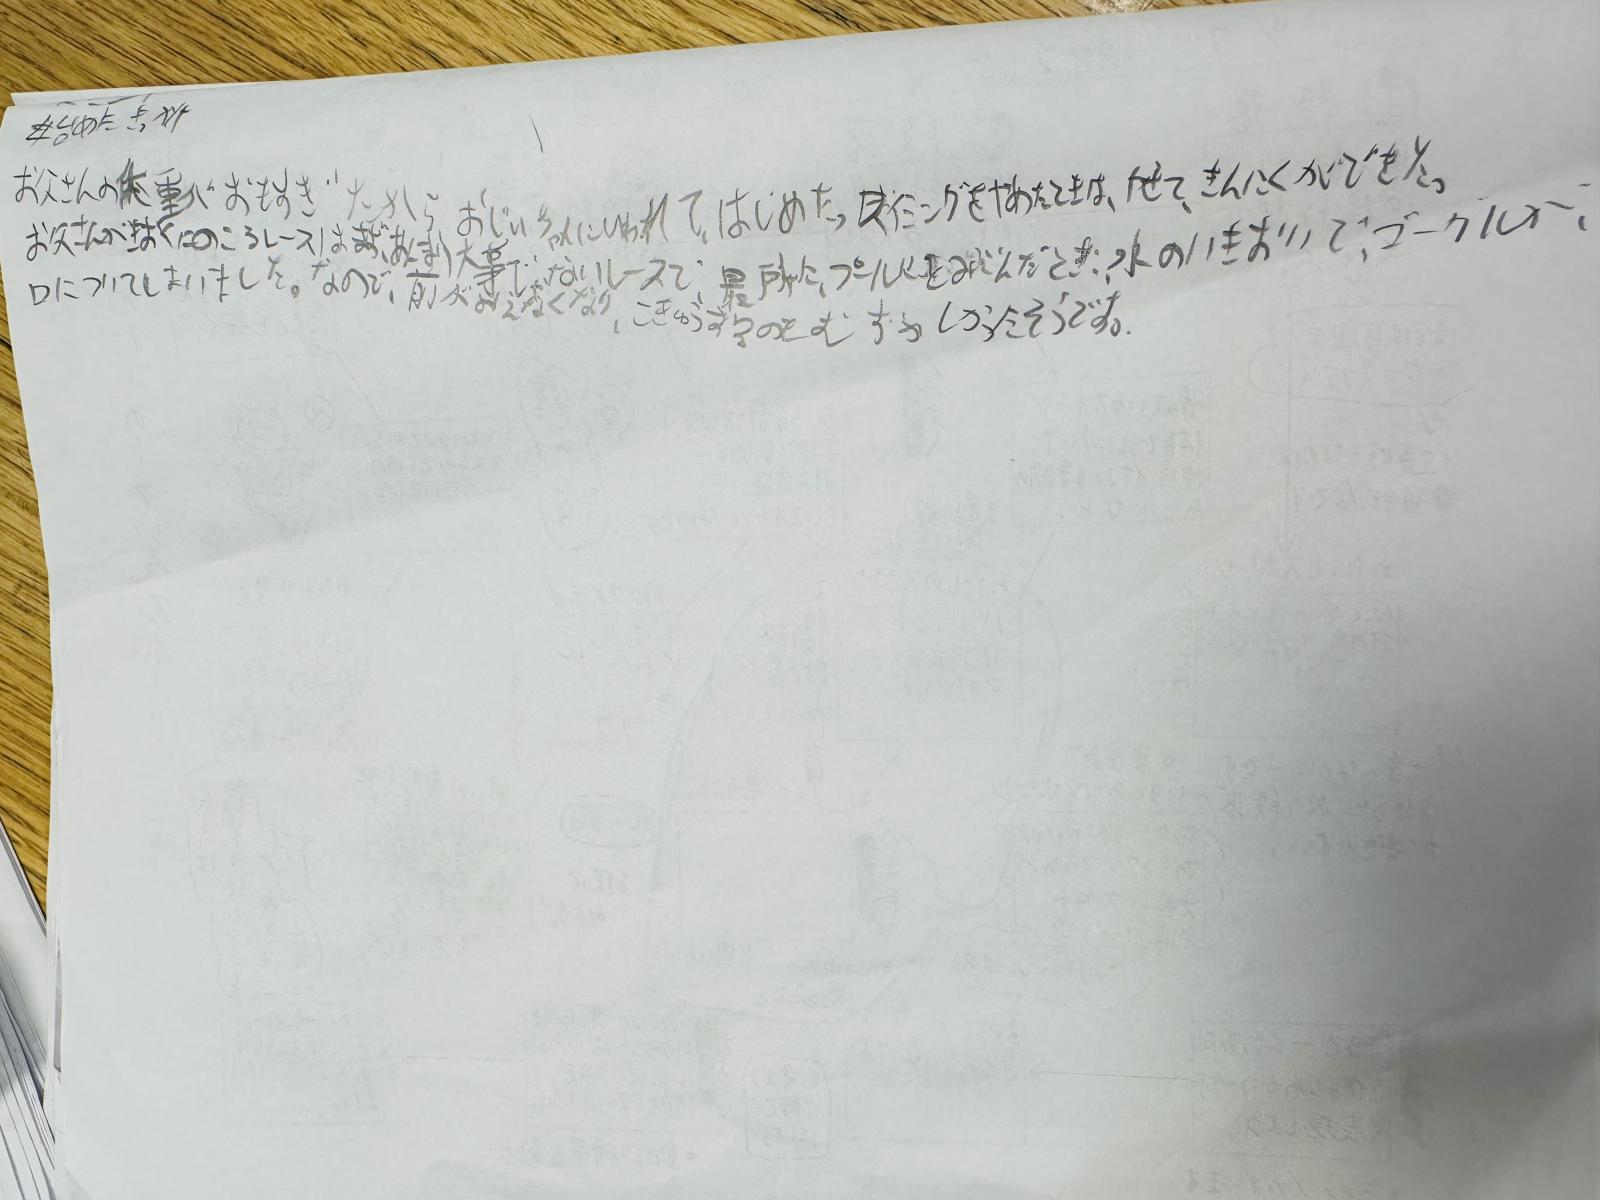 始めたきっかけ
お父さんの体重がおもすぎたから おじいさんにいわれて、はじめた。スイミングをやめたときは、やせて、きんにくができた。
お父さんが のころレースは、あまり大事でないレースで、最初に、プールにとびこんだとき、水のいきおいで、ゴーグルが、
口についてしまいました。なので、前がみえなくなり、こきゅうするのもむずかしかったそうです。